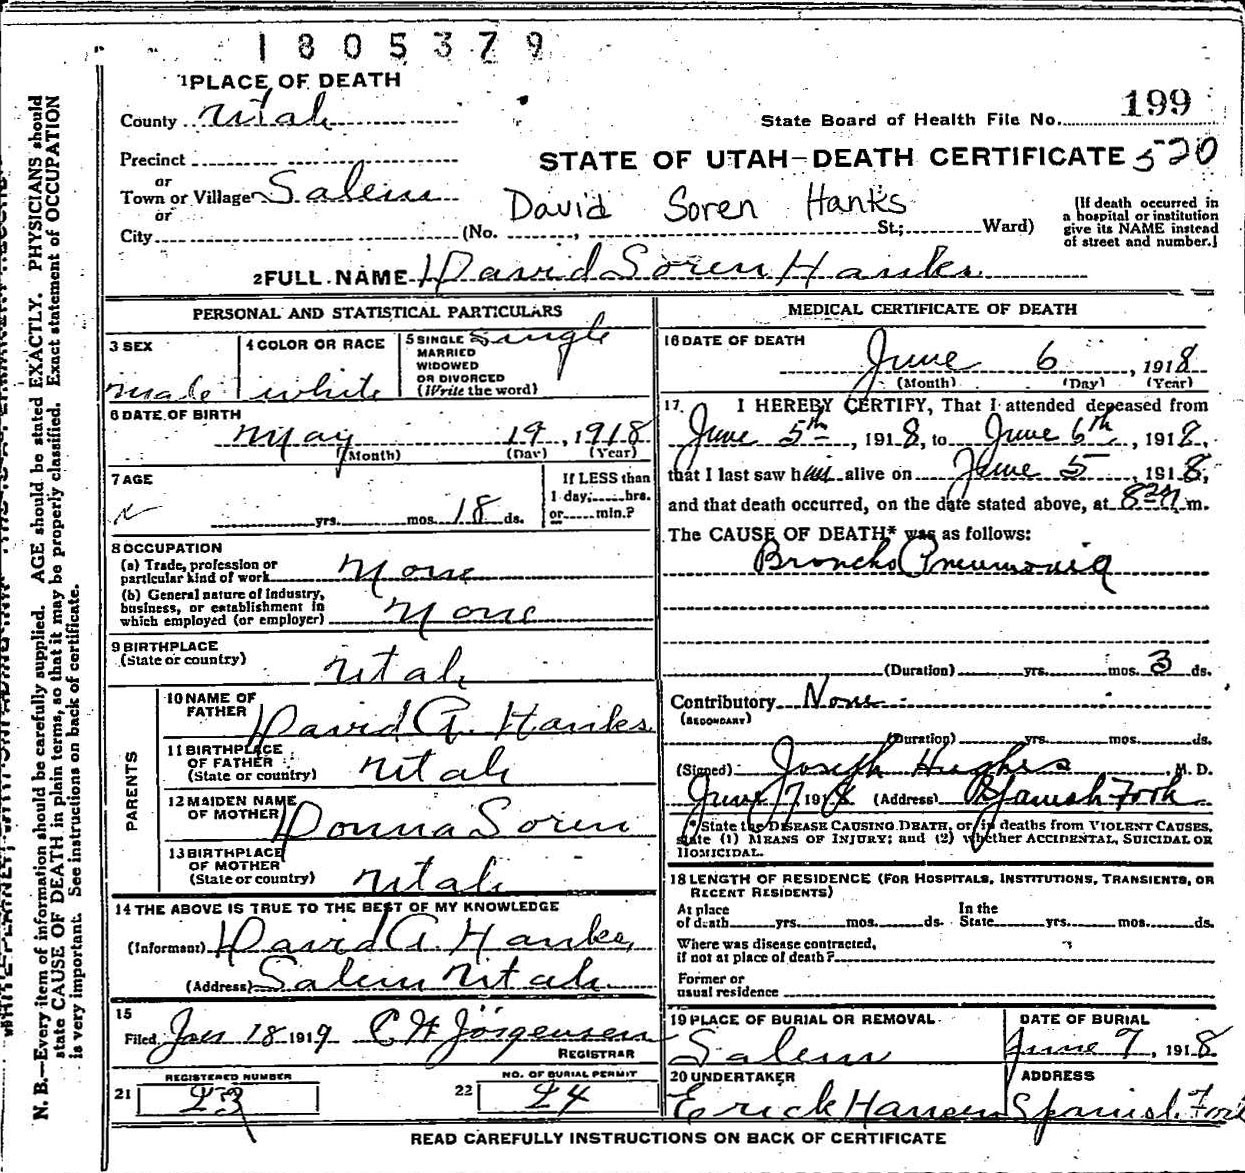 1805379
1 PLACE OF DEATH
County Utah
State Board of Health File No. 199
Precinct
STATE OF UTAH—DEATH CERTIFICATE 520
or
Town or Village Salem
or
David Soren Hanks
City (No. , St.; Ward)
(If death occurred in
a hospital or institution
give its NAME instead
of street and number.)
2 FULL NAME David Soren Hanks
PERSONAL AND STATISTICAL PARTICULARS
3 SEX
male
4 COLOR OR RACE
white
5 SINGLE Single
MARRIED
WIDOWED
OR DIVORCED
(Write the word)
6 DATE OF BIRTH
May 19, 1918
(Month) (Day) (Year)
7 AGE
yrs. mos. 18 ds.
If LESS than
1 day; hrs.
or min.?
8 OCCUPATION
(a) Trade, profession or
particular kind of work None
(b) General nature of industry,
business, or establishment in
which employed (or employer) None
9 BIRTHPLACE
(State or country) Utah
PARENTS
10 NAME OF
FATHER David A. Hanks
11 BIRTHPLACE
OF FATHER
(State or country) Utah
12 MAIDEN NAME
OF MOTHER Donna Soren
13 BIRTHPLACE
OF MOTHER
(State or country) Utah
14 THE ABOVE IS TRUE TO THE BEST OF MY KNOWLEDGE
(Informant) David A. Hanks
(Address) Salem Utah
15
Filed Jan 18 1919 C W Jorgensen
REGISTRAR
REGISTERED NUMBER
21 23
NO. OF BURIAL PERMIT
22 24
MEDICAL CERTIFICATE OF DEATH
16 DATE OF DEATH
June 6, 1918
(Month) (Day) (Year)
17. I HEREBY CERTIFY, That I attended deceased from
June 5th, 1918, to June 6th, 1918,
that I last saw him alive on June 5, 1918,
and that death occurred, on the date stated above, at m.
The CAUSE OF DEATH* was as follows:
Broncho Pneumonia
(Duration) yrs. mos. 3 ds.
Contributory None
(SECONDARY)
(Duration) yrs. mos. ds.
(Signed) Joseph Hughes, M. D.
June 7 1918 (Address) Spanish Fork
*State the DISEASE CAUSING DEATH, or, in deaths from VIOLENT CAUSES,
state (1) MEANS OF INJURY; and (2) whether ACCIDENTAL, SUICIDAL OR
HOMICIDAL.
18 LENGTH OF RESIDENCE (FOR HOSPITALS, INSTITUTIONS, TRANSIENTS, OR
RECENT RESIDENTS)
At place
of death yrs. mos. ds.
In the
State yrs. mos. ds.
Where was disease contracted,
if not at place of death?
Former or
usual residence
19 PLACE OF BURIAL OR REMOVAL
Salem
DATE OF BURIAL
June 7, 1918
20 UNDERTAKER
Erick Hansen
ADDRESS
Spanish Fork
READ CAREFULLY INSTRUCTIONS ON BACK OF CERTIFICATE
N. B.—Every item of information should be carefully supplied. AGE should be stated EXACTLY. PHYSICIANS should
state CAUSE OF DEATH in plain terms, so that it may be properly classified. Exact statement of OCCUPATION
is very important. See instructions on back of certificate.